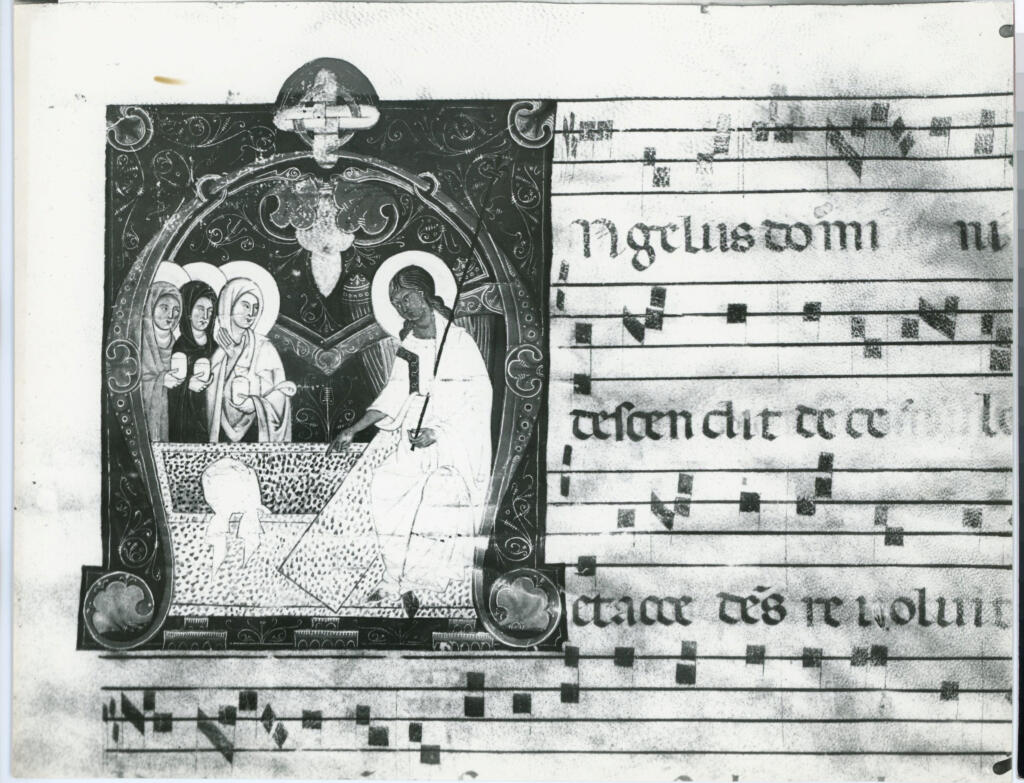 Ngelus domi ni
descen dit de ce lo
et acce dēs re uoluit